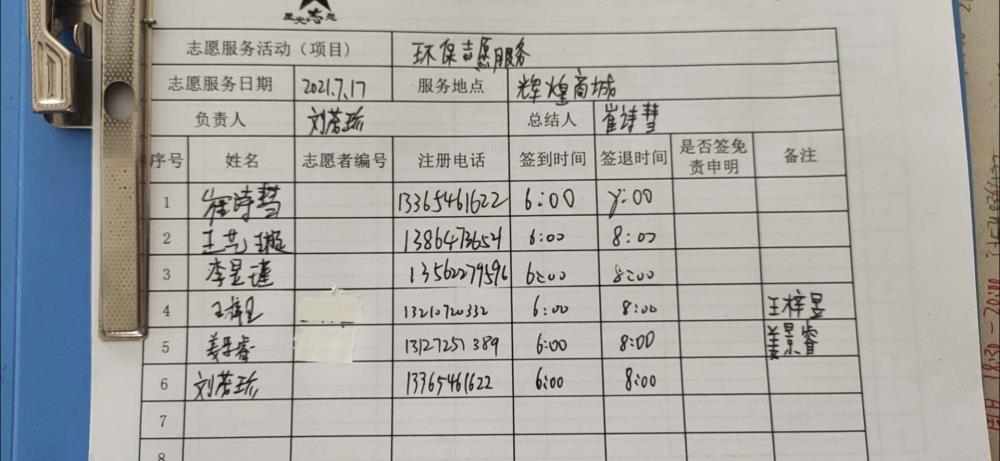 星光志愿
志愿服务活动（项目） 环保志愿服务
志愿服务日期 2021.7.17 服务地点 辉煌商城
负责人 刘若珍 总结人 崔诗彗
序号 姓名 志愿者编号 注册电话 签到时间 签退时间 是否签免责申明 备注
1 崔诗彗 13365461622 6:00 8:00
2 王艺璇 1386473654 6:00 8:00
3 李昱瑾 13562279596 6:00 8:00
4 王梓昱 13210720332 6:00 8:00 王梓昱
5 姜景睿 13127251389 6:00 8:00 姜景睿
6 刘若珍 13365461622 6:00 8:00
7
8